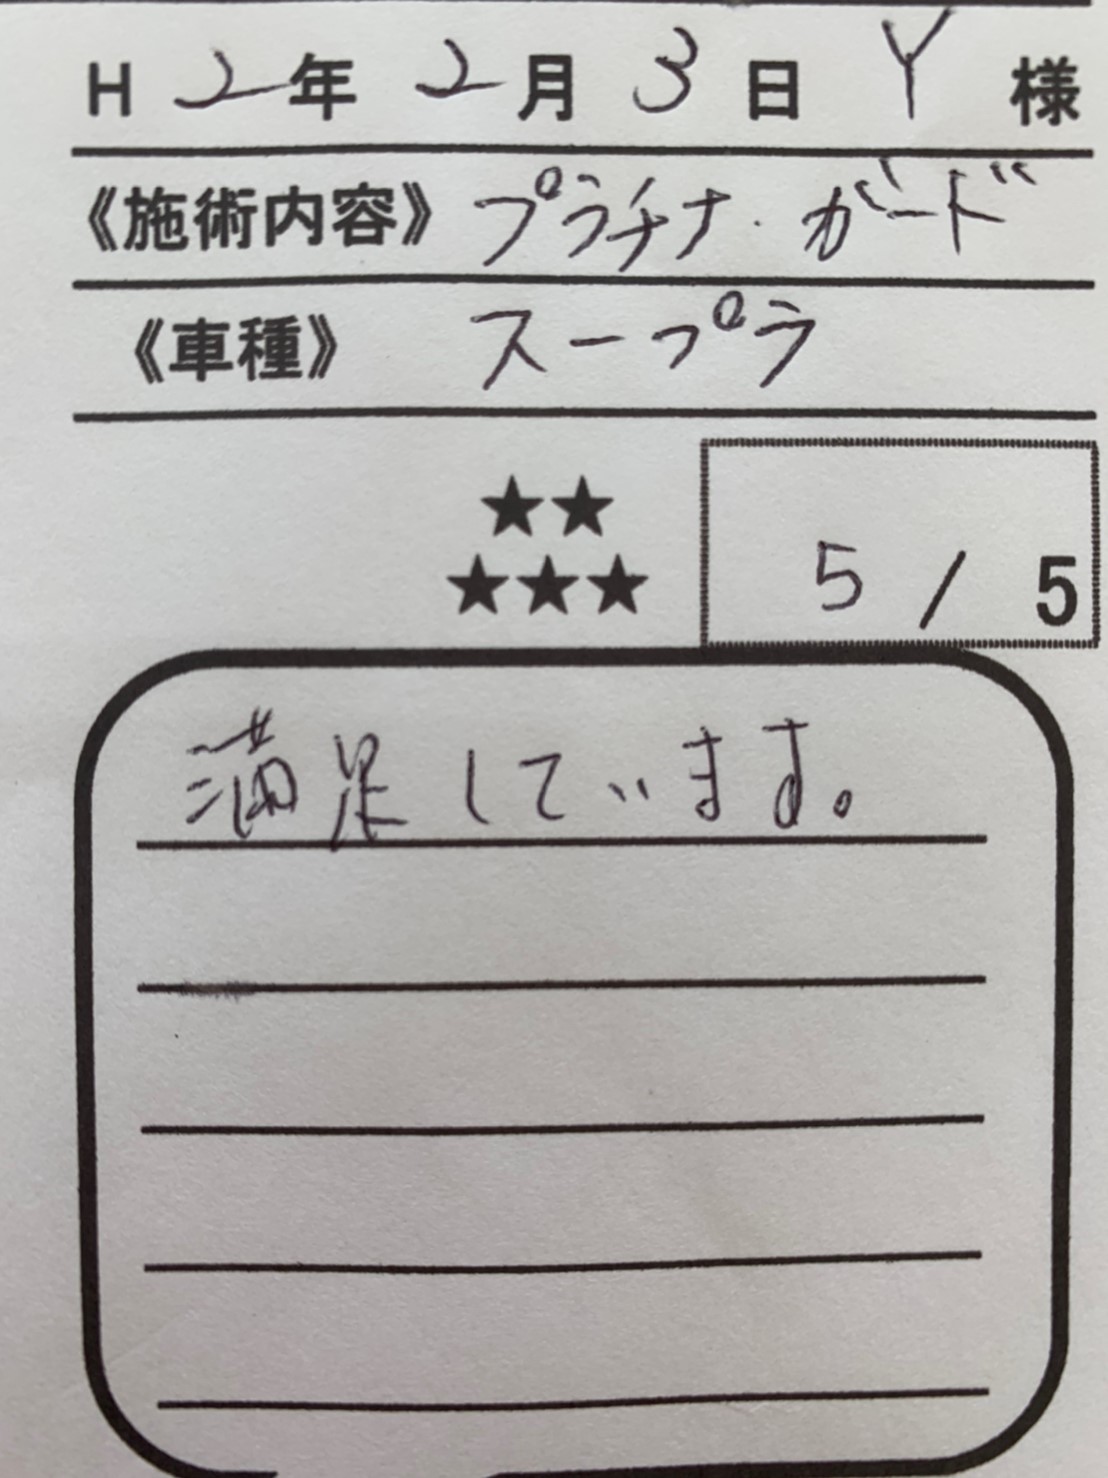 H 2年 2月 3日 Y 様
《施術内容》 プラチナ・ガード
《車種》 スープラ
★★
★★★ 5 / 5
満足しています。